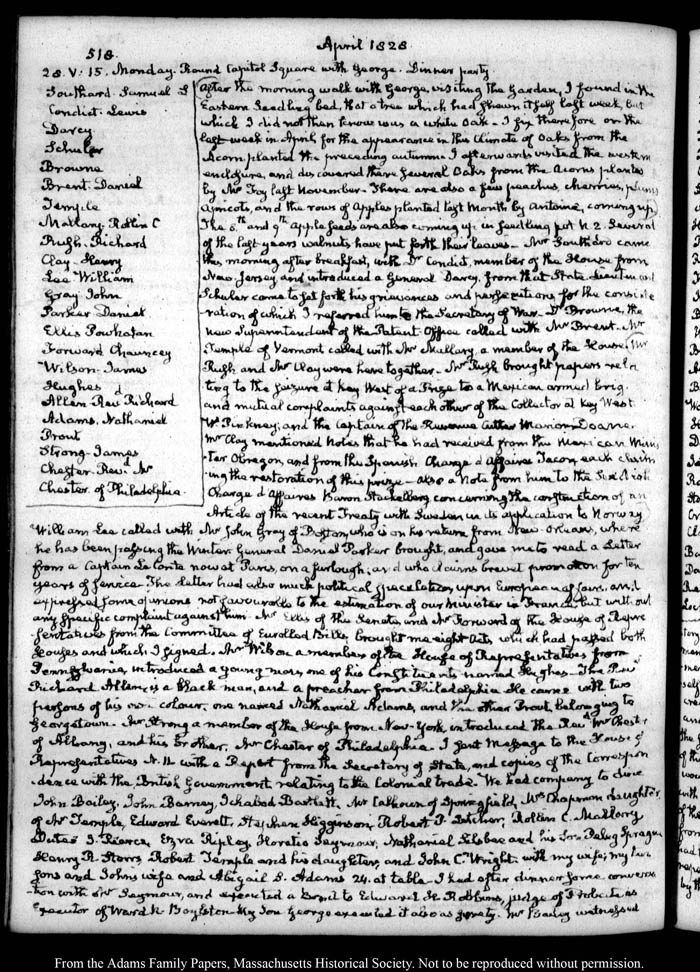 518
April 1828
28. V: 15. Monday. Round Capitol Square with George. Dinner party
Southard. Samuel L
Condict. Lewis
Darcy
Schuler
Browne
Brent. Daniel
Temple
Mallary. Rollin C
Rush. Richard
Clay. Henry
Lee William
Gray John
Parker Daniel
Ellis Powhatan
Forward Chauncey
Wilson. James
Hughes
Allen Revd Richard
Adams. Nathaniel
Prout
Strong. James
Chester. Revd Mr
Chester. of Philadelphia
After the morning walk with George, visiting the Garden, I found in the
Eastern Seedling bed, that a tree which had shewn itself last week, but
which I did not then know was a white Oak. I fix therefore on the
last week in April for the appearance in this Climate of Oaks from the
Acorn planted the preceding autumn. I afterwards visited the western
enclosure, and discovered there several Oaks from the acorns planted
by Mr Foy last November. There are also a few peaches, cherries, plums
Apricots, and the rows of Apples planted last Month by Antoine, coming up
The 8th and 9th Apple seeds are also coming up in seedling pot N. 2. Several
of the last years walnuts have put forth their leaves. Mr Southard came
this morning after breakfast, with Dr Condict, member of the House from
New Jersey and introduced a General Darcy, from that State. Lieutenant
Schuler came to set forth his grievances and persecutions for the conside
ration of which I referred him to the Secretary of War. Dr Browne, the
new Superintendent of the Patent Office called with Mr Brent. Mr
Temple of Vermont called with Mr Mallary, a member of the House. Mr
Rush and Mr Clay were here together. Mr Rush brought papers rela
ting to the seizure at Key West of a Prize to a Mexican armed brig.
and mutual complaints against each other of the Collector at Key West
W. Pinkney, and the Captain of the Revenue Cutter Marion Doane.
Mr Clay mentioned Notes that he had received from the Mexican Minis
ter Obregon, and from the Spanish Chargé d'Affaires Tacon, each claim
ing the restoration of this prize. also a Note from him to the Swedish
Chargé d'Affaires Baron Stackelberg concerning the construction of an
Article of the recent Treaty with Sweden in its application to Norway
William Lee called with Mr John Gray of Boston, who is on his return from New-Orleans, where
he has been passing the Winter. General Daniel Parker brought, and gave me to read a Letter
from a Captain Le Conte now at Paris, on a furlough, and who claims brevet promotion for ten
years of service. The Letter had also much political speculation upon European affairs, and
expressed some opinions not favourable to the estimation of our Minister in France but without
any specific complaint against him. Mr Ellis of the Senate, and Mr Forward of the House of Repre
sentatives from the Committee of Enrolled Bills, brought me eight Acts, which had passed both
Houses and which I signed. Mr Wilson a member of the House of Representatives from
Pennsylvania, introduced a young man, one of his Constituents named Hughes. The Revd
Richard Allen, is a black man, and a preacher from Philadelphia. He came with two
persons of his own colour, one named Nathaniel Adams, and the other Prout, belonging to
Georgetown. Mr Strong a member of the House from New-York introduced the Revd Mr Chester
of Albany, and his Brother, Mr Chester of Philadelphia. I sent Message to the House of
Representatives N. 11 with a Report from the Secretary of State, and copies of the Correspon
dence with the British Government relating to the Colonial trade. We had company to dine
John Bailey, John Barney, Ichabod Bartlett, Mr Calhoun of Springfield, Mrs Chapman daughter
of Mr Temple, Edward Everett, Stephen Higginson, Robert P. Letcher, Rollin C. Mallary
Dutee J. Pearce, Ezra Ripley, Horatio Seymour, Nathaniel Silsbee and his Son Peleg Sprague
Henry R. Storrs, Robert Temple and his daughters, and John C. Wright, with my wife, my two
sons and Johns wife and Abigail S. Adams 24. at table. I had after dinner some conversa
tion with Mr Seymour, and executed a bond to Edward H. Robbins, judge of Probate as
Executor of Ward N. Boylston. My Son George executed it also as surety. Mr Bailey witnessed
From the Adams Family Papers, Massachusetts Historical Society. Not to be reproduced without permission.